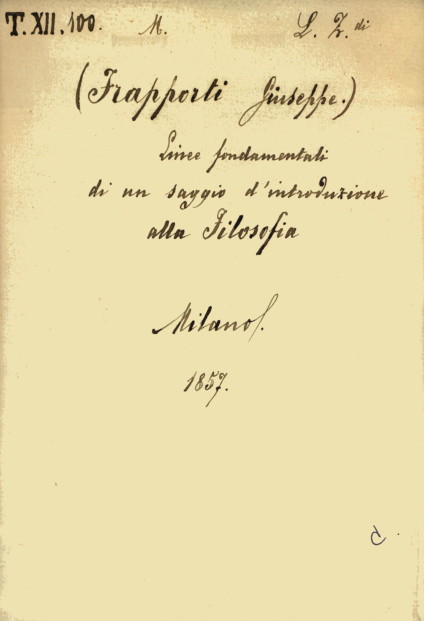 T. XII. 100. M. L. Z. di
(Frapporti Giuseppe.)
Linee fondamentali
di un saggio d'introduzione
alla Filosofia
Milano.
1857.